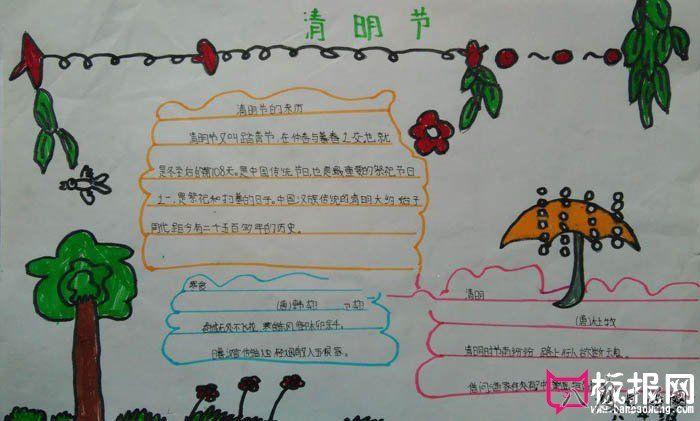 清明节
清明节的来历
清明节又叫踏青节，在仲春与暮春之交也，就
是冬至后的第108天。是中国传统节日，也是最重要的祭祀节日
之一，是祭祀和扫墓的日子。中国汉族传统的清明大约始于
周代，距今有二千五百多年的历史。
寒食
(唐)韩
春城无处不飞花，寒食东风御柳斜。
日暮汉宫传蜡烛，轻烟散入五侯家。
清明
(唐)杜牧
清明时节雨纷纷，路上行人欲断魂。
借问酒家何处有
板报网
www.banbaowang.com